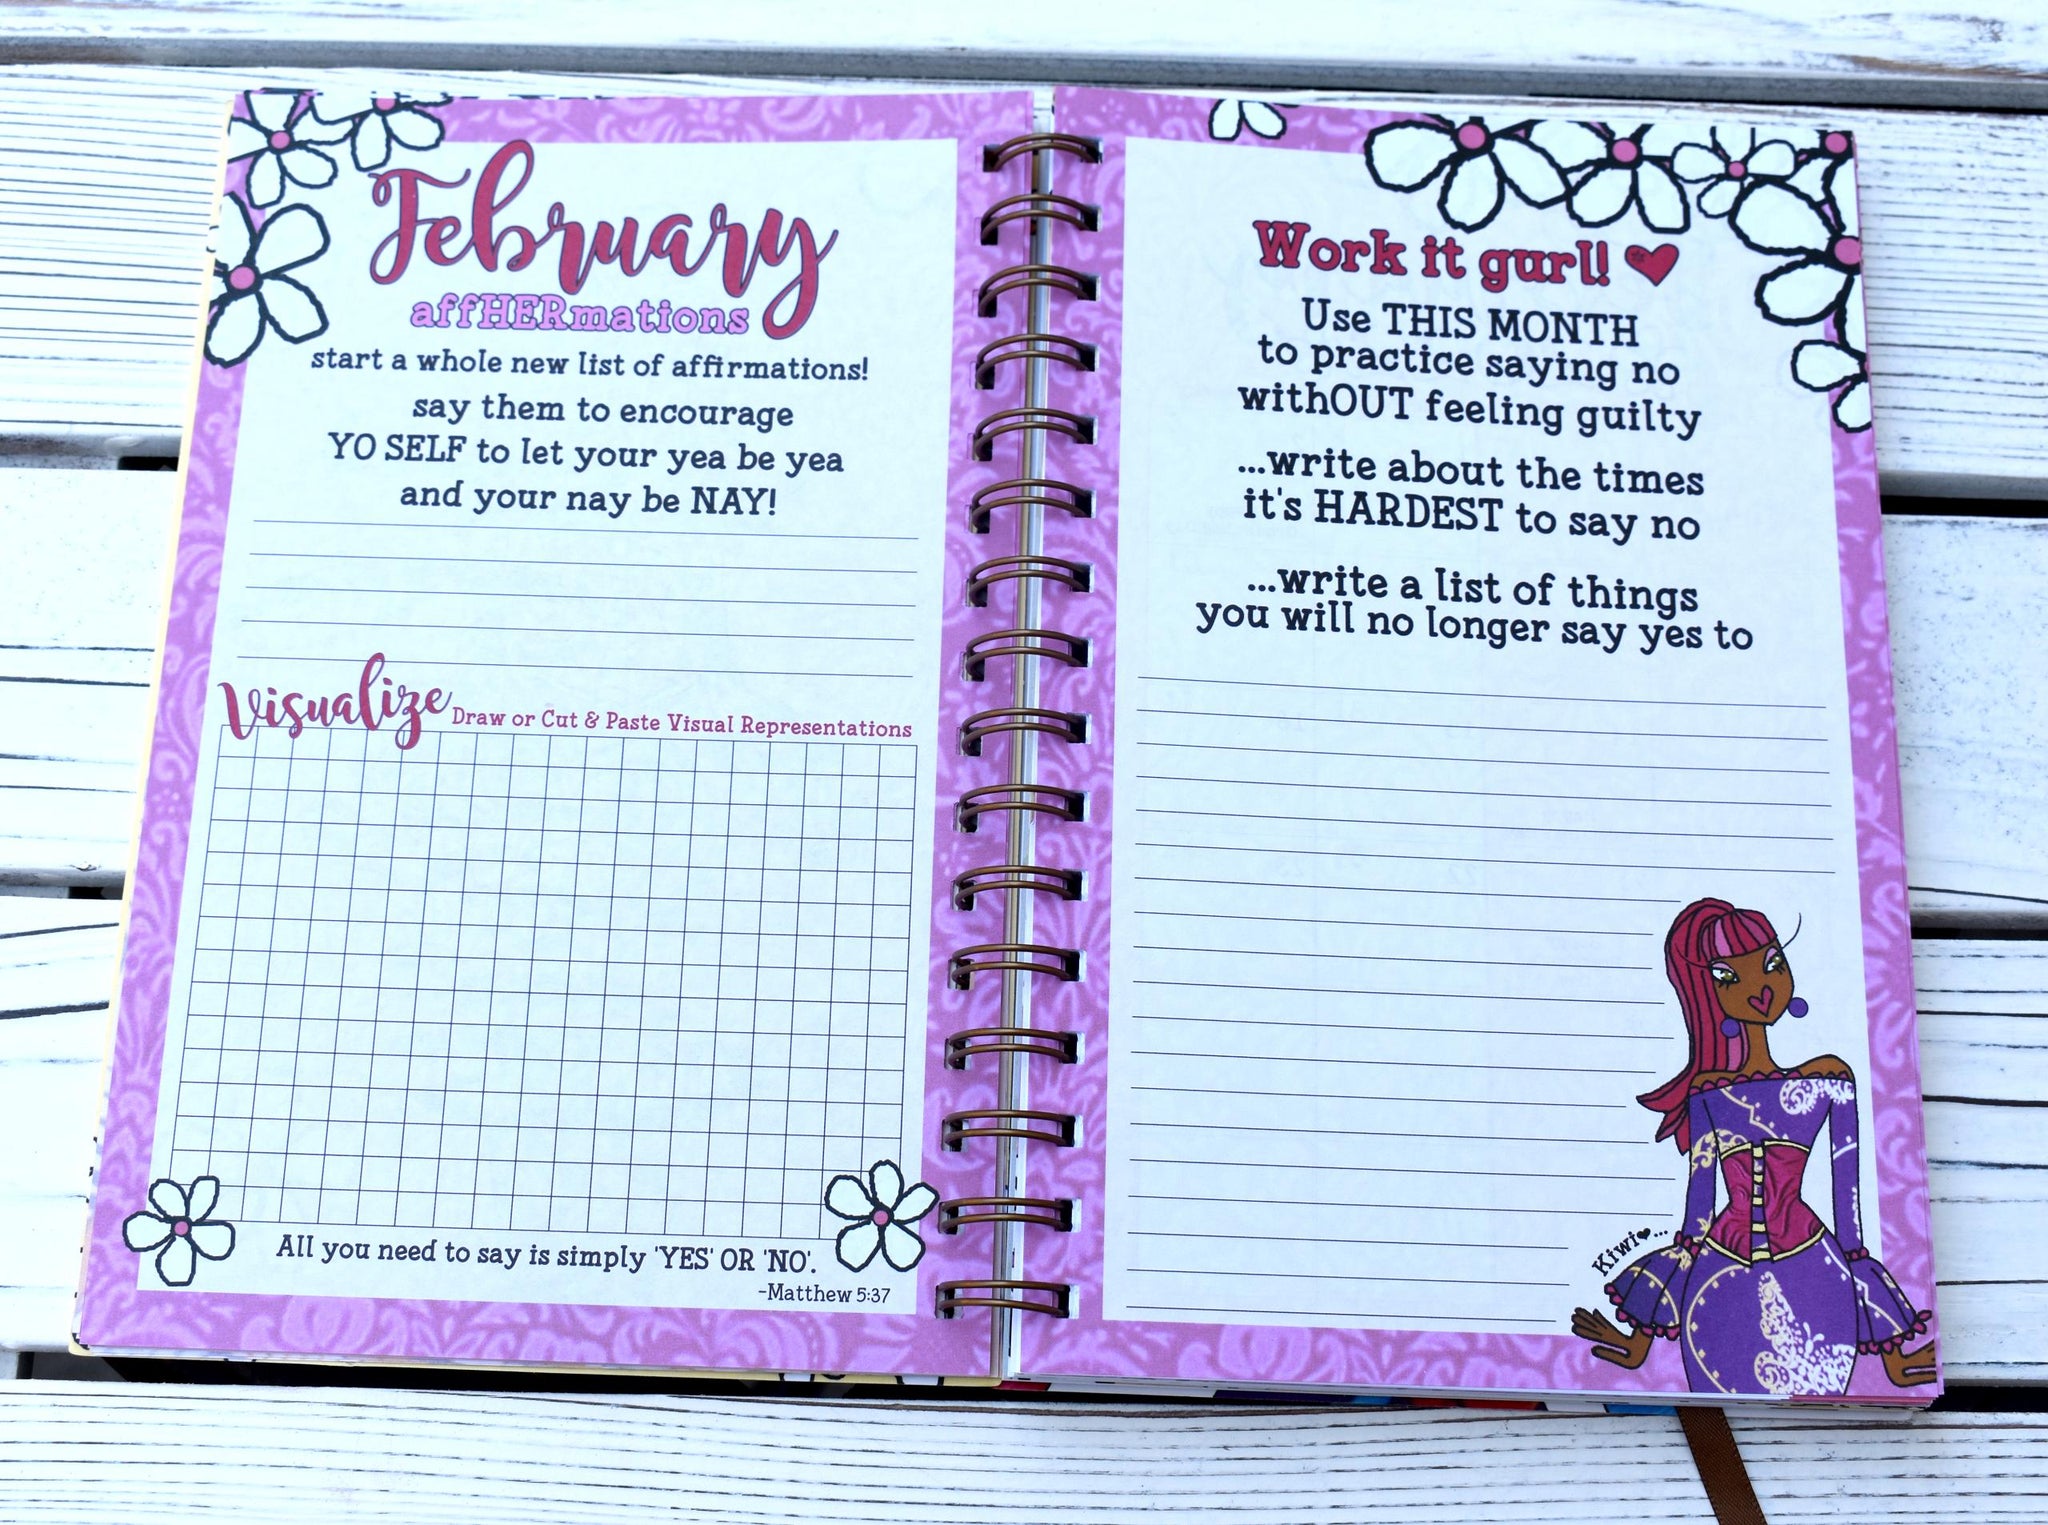 February
affHERmations
start a whole new list of affirmations!
say them to encourage
YO SELF to let your yea be yea
and your nay be NAY!
Visualize Draw or Cut & Paste Visual Representations
All you need to say is simply 'YES' OR 'NO'.
-Matthew 5:37
Work it gurl!
Use THIS MONTH
to practice saying no
withOUT feeling guilty
...write about the times
it's HARDEST to say no
...write a list of things
you will no longer say yes to
Kiwi♥...